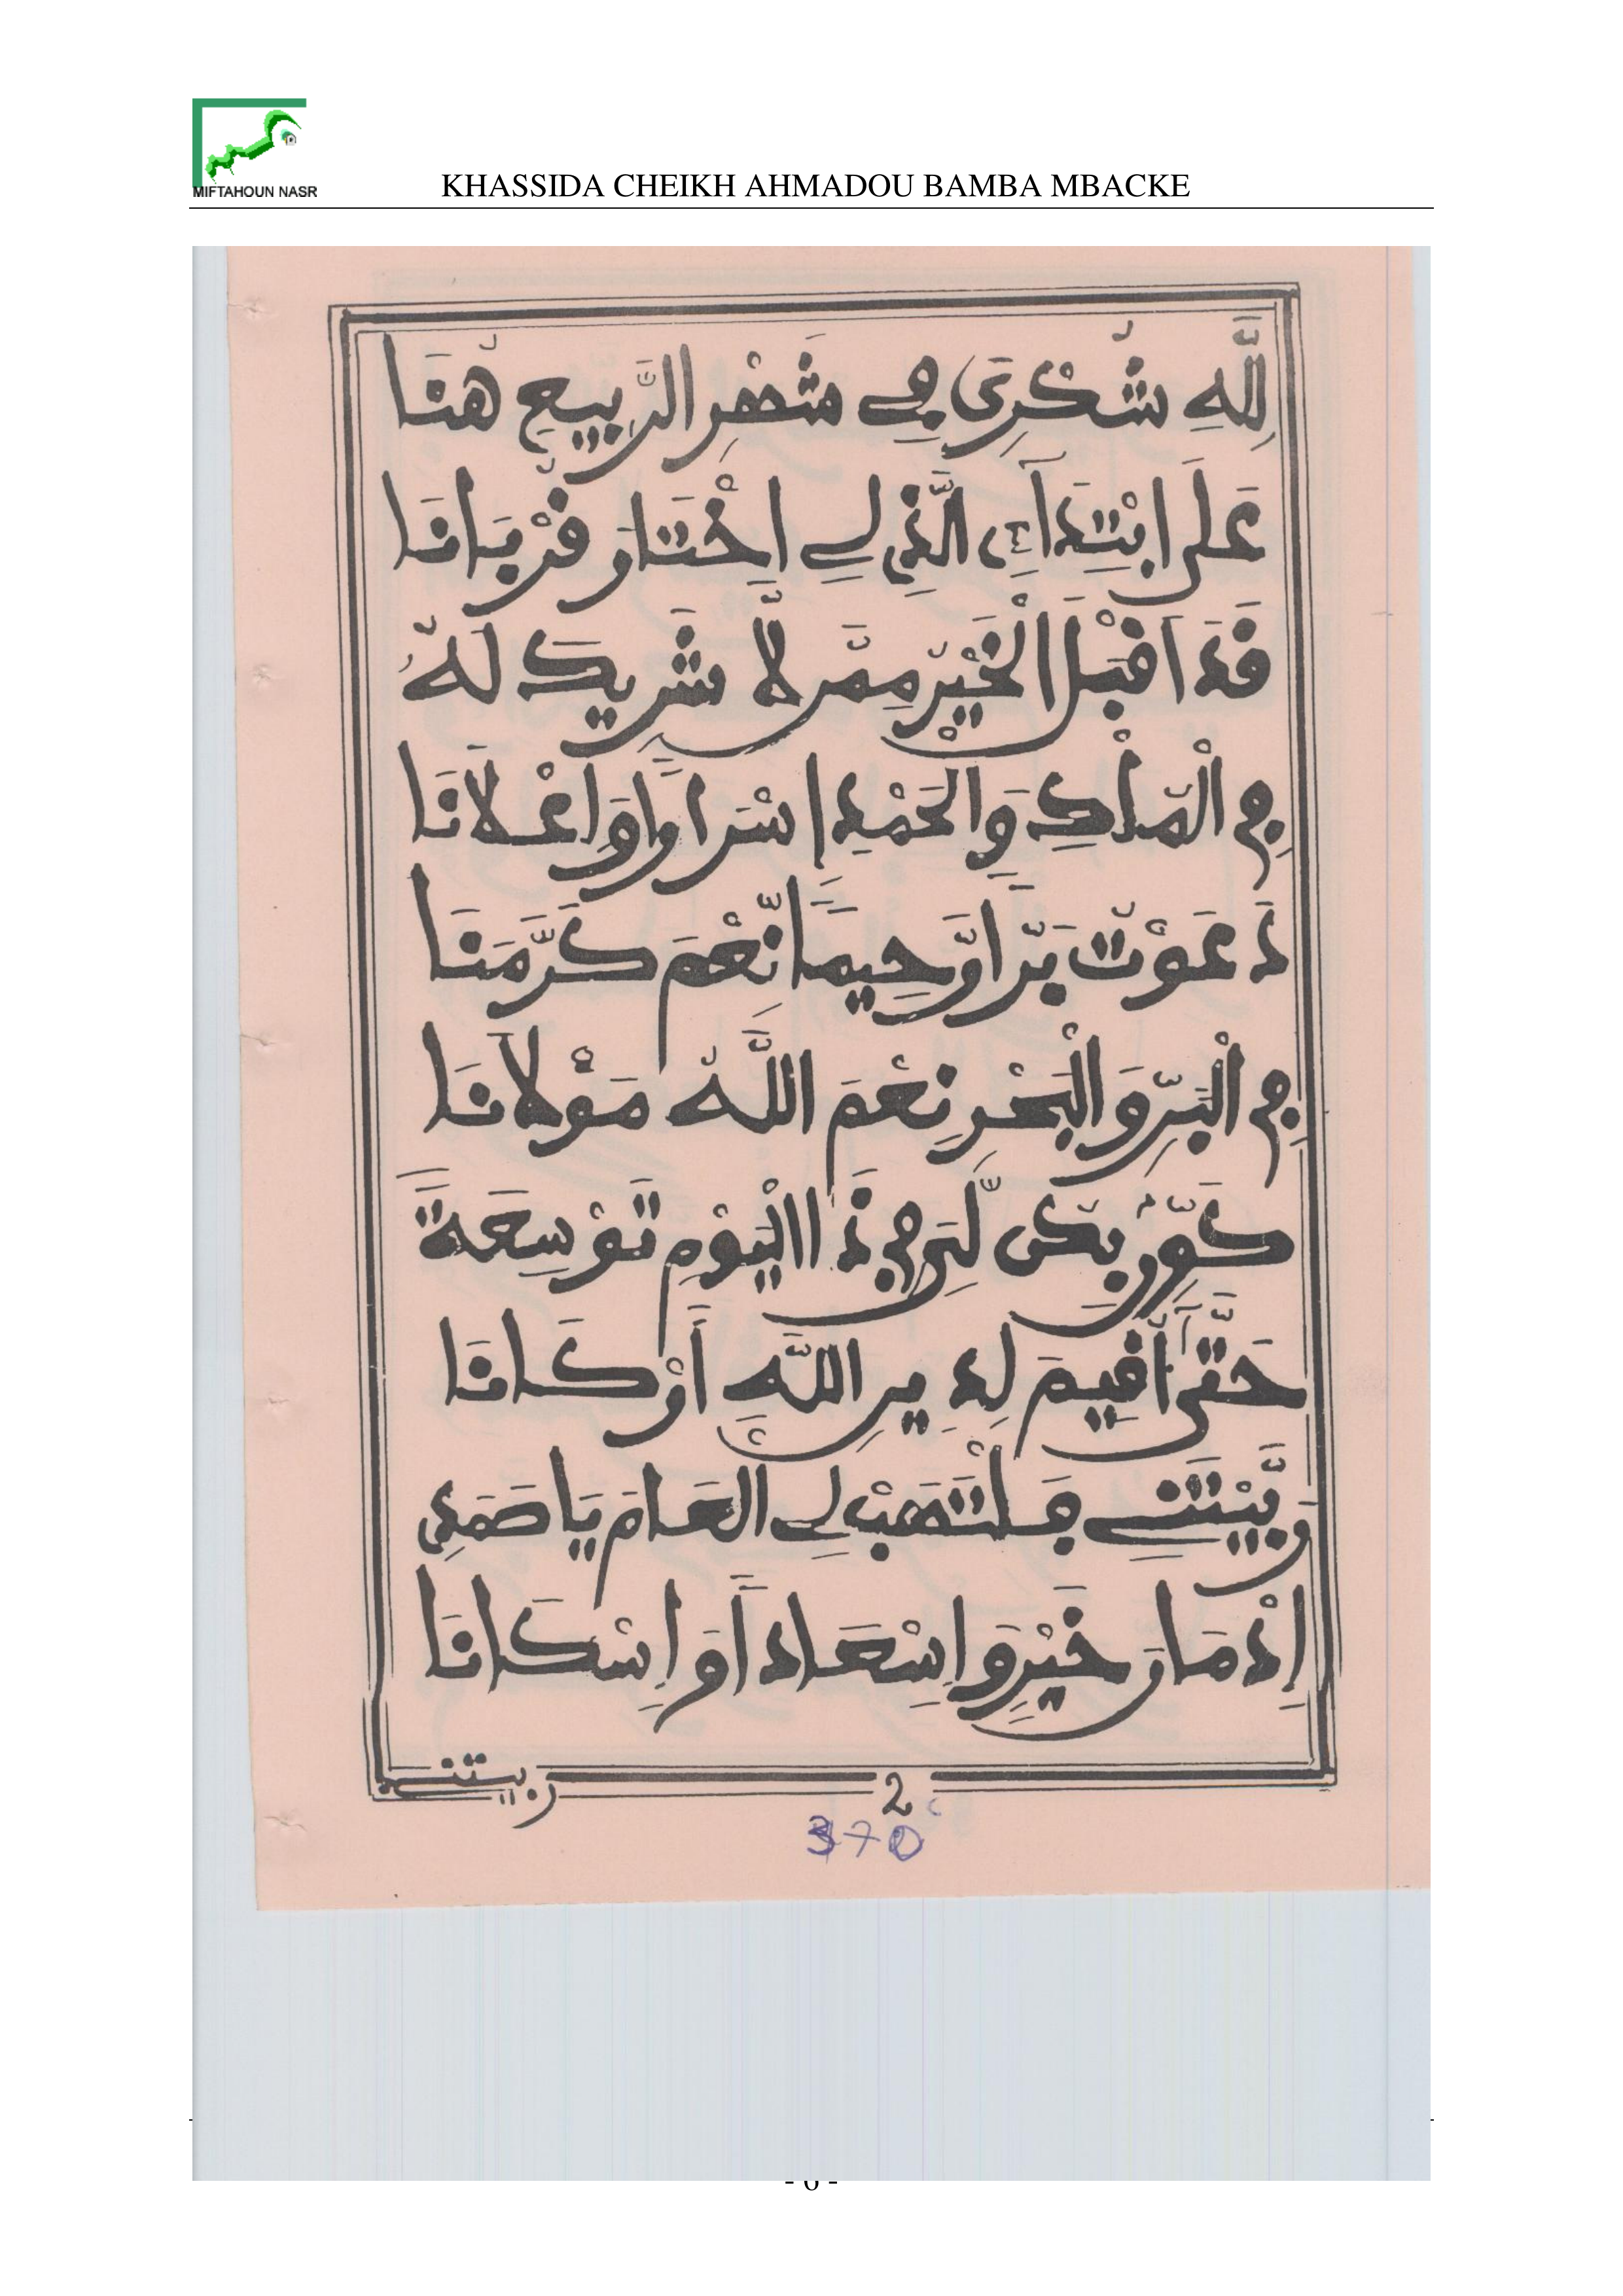 MIFTAHOUN NASR
KHASSIDA CHEIKH AHMADOU BAMBA MBACKE
لِلَّهِ شُكْرِى فِے شَهْرِ الرَّبِيعِ هُنَا
عَلَى ابْتِدَاءِ الَّذِى لِے اخْتَارَ قُرْبَانَا
قَدَ اقْبَلَ الْخَيْرُ مِمَّن لَّا شَرِيكَ لَهُ
فِى الْمُلْكِ وَالْحَمْدِ إِسْرَارًا وَإِعْلَانَا
دَعَوْتُ بَرًّا رَّحِيمًا نِّعْمَ كَرَّمَنَا
فِى الْبَرِّ وَالْبَحْرِ نِعْمَ اللَّهُ مَوْلَانَا
كَوِّن بِكُن لِّى فِى ذَا الْيَوْمِ تَوْسِعَةً
حَتَّى أُقِيمَ لِدِينِ اللَّهِ أَرْكَانَا
رَبَّيْتَنِے فَلْتَهَبْ لِے الْعَامَ يَا صَمَدِى
إِدْمَانَ خَيْرٍ وَإِسْعَادًا وَإِسْكَانَا
ربيتنے
2
370
- 6 -